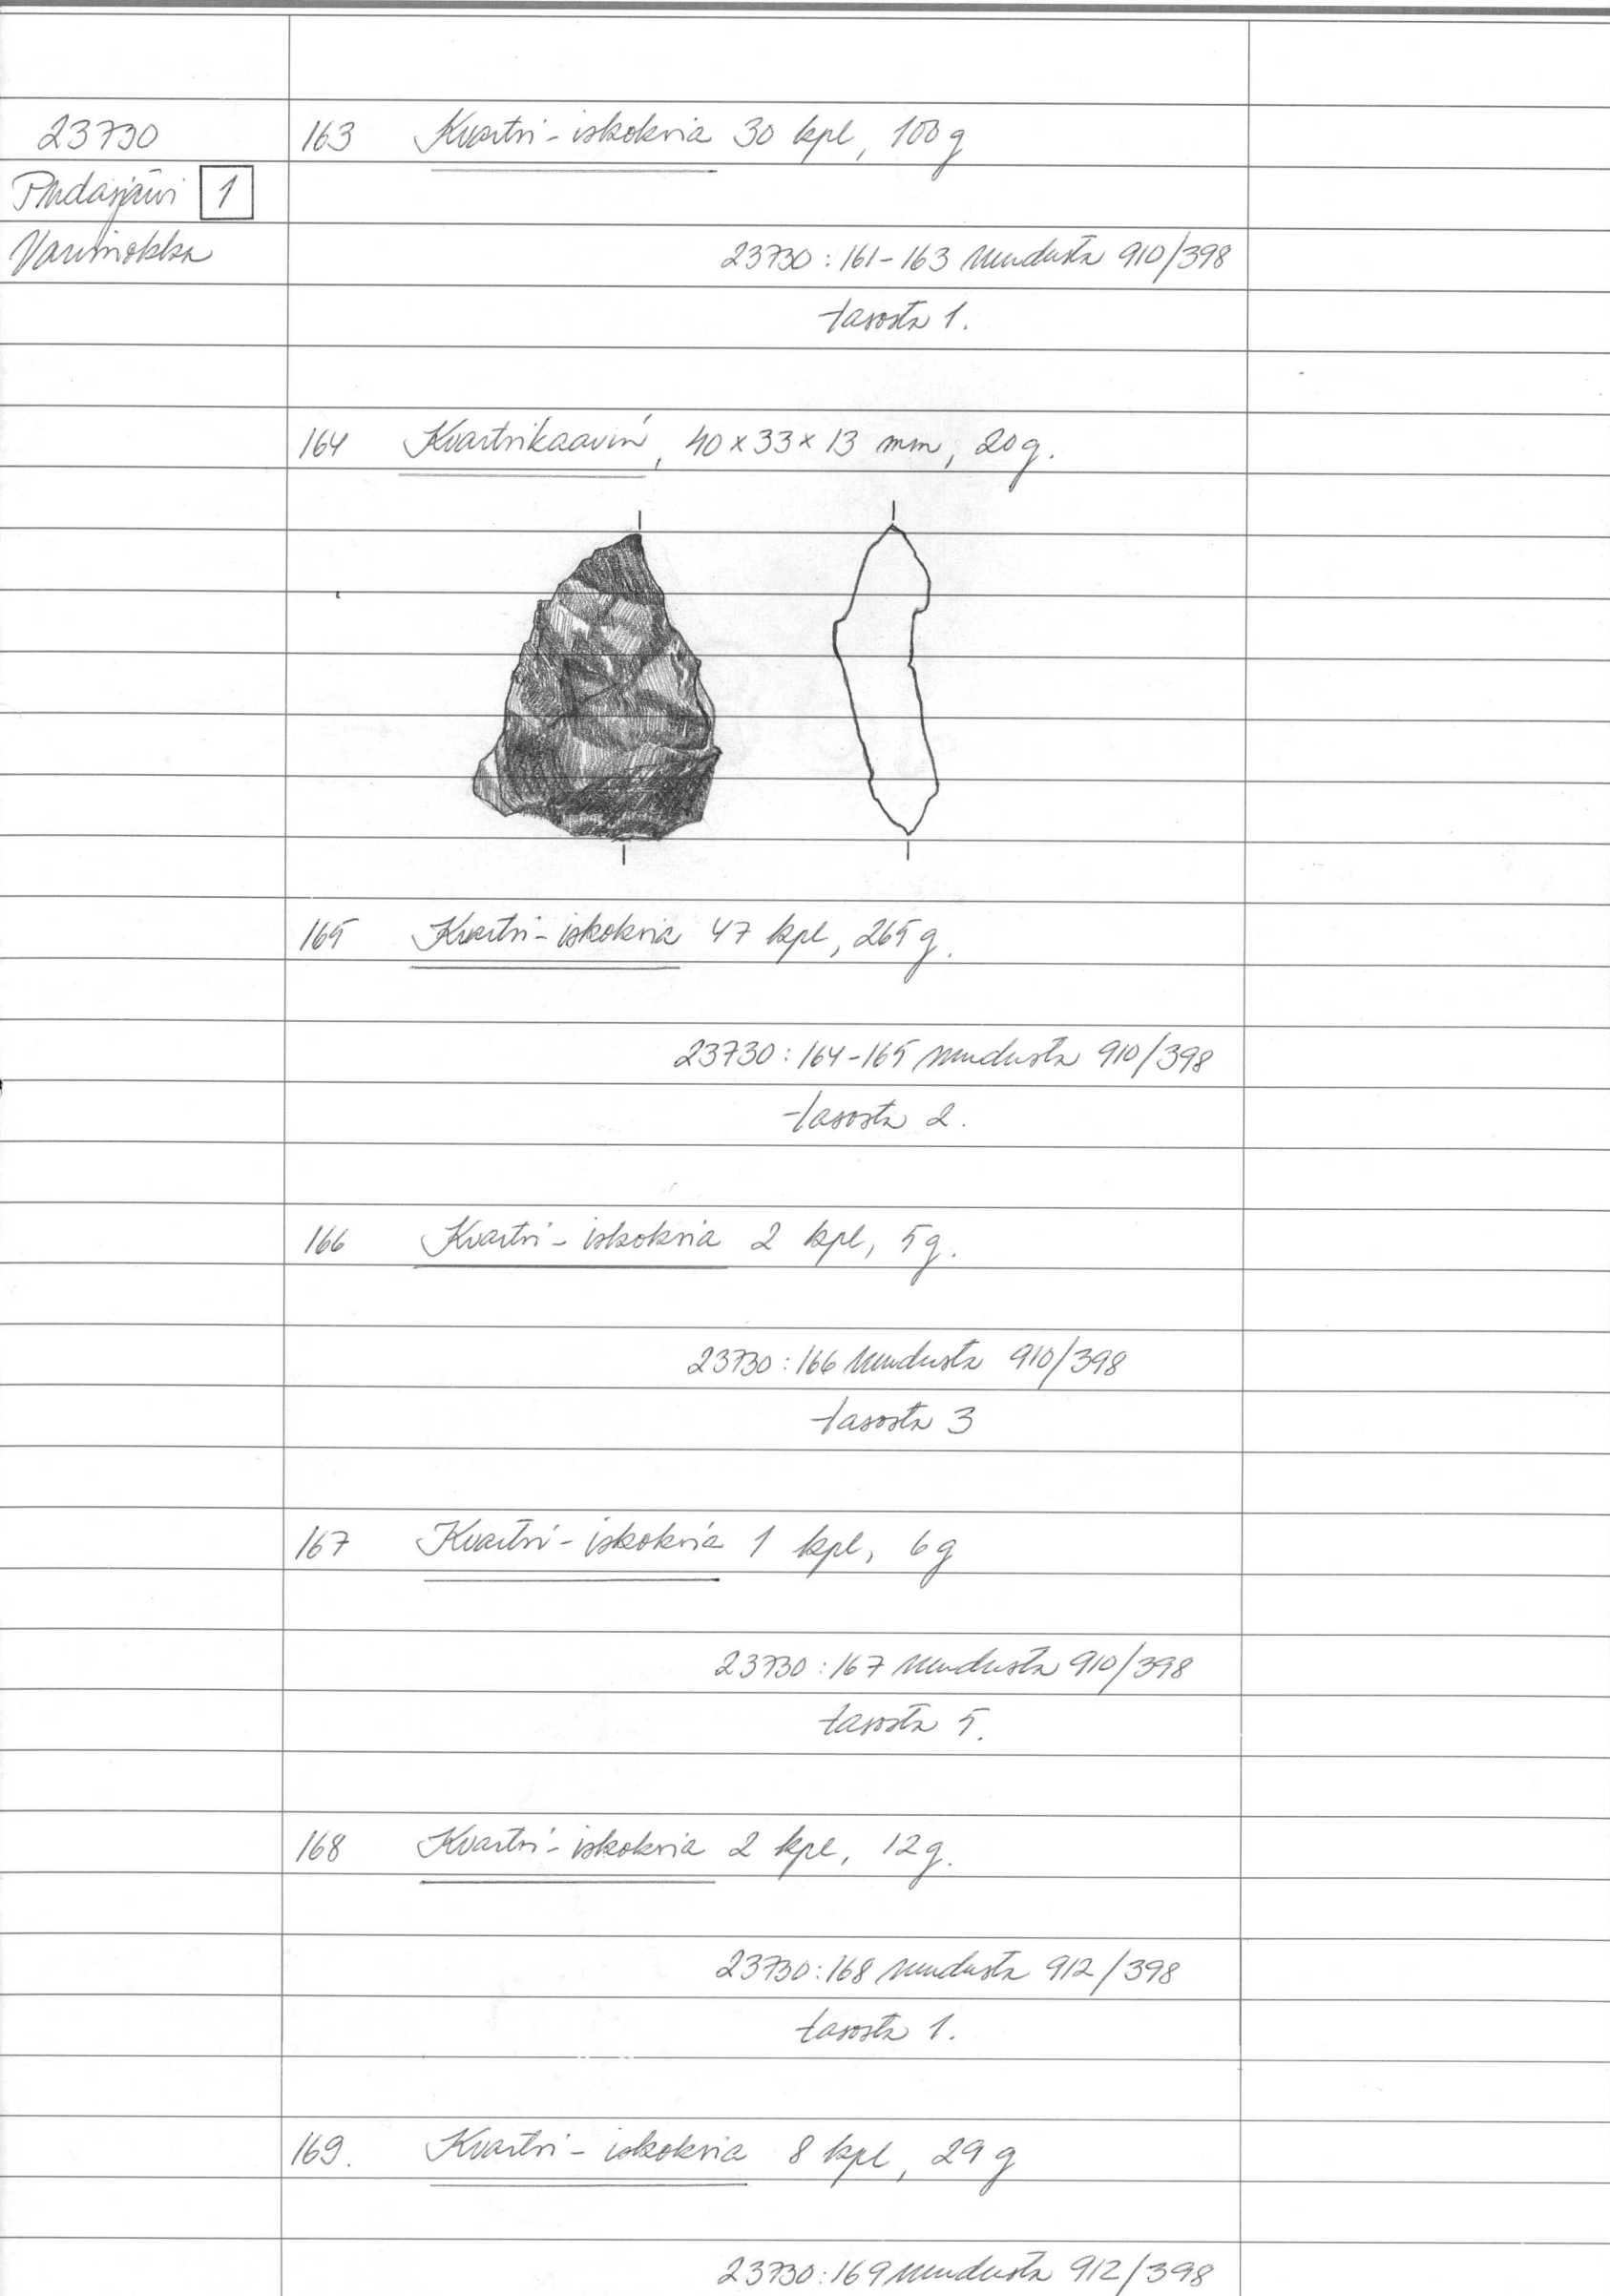 23730
163 Kvartsi-iskoksia 30 kpl, 100 g
Pudasjärvi 1
Varisnokka
23730:161-163 ruudusta 910/398
tasosta 1.
164 Kvartsikaavin, 40x33x13 mm, 20g.
165 Kvartsi-iskoksia 47 kpl, 265 g.
23730:164-165 ruudusta 910/398
tasosta 2.
166 Kvartsi-iskoksia 2 kpl, 5g.
23730:166 ruudusta 910/398
tasosta 3
167 Kvartsi-iskoksia 1 kpl, 6g
23730:167 ruudusta 910/398
tasosta 5.
168 Kvartsi-iskoksia 2 kpl, 12g.
23730:168 ruudusta 912/398
tasosta 1.
169. Kvartsi-iskoksia 8 kpl, 29 g
23730:169 ruudusta 912/398